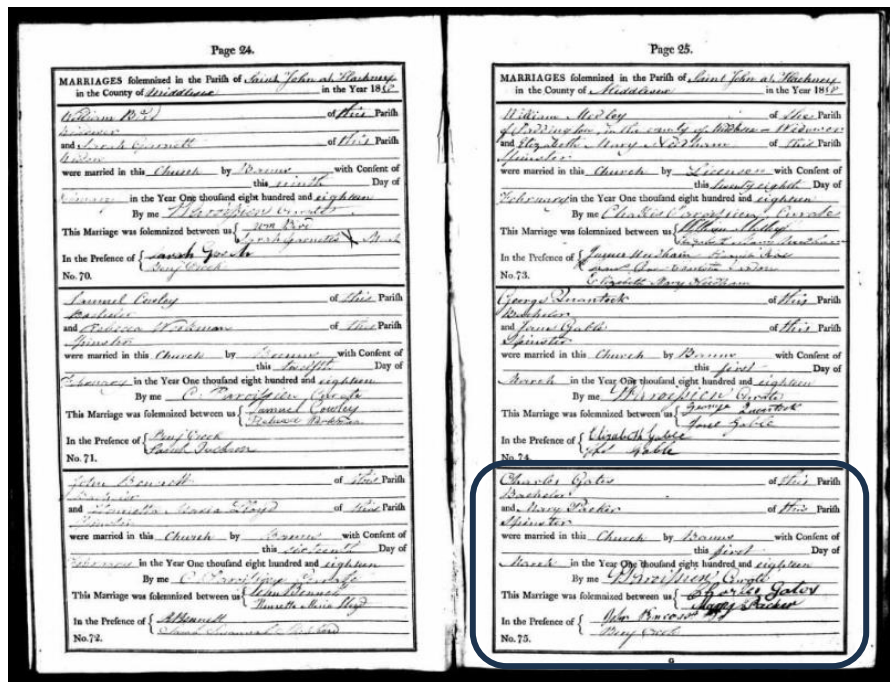 Page 24.
MARRIAGES solemnized in the Parish of Saint John at Hackney
in the County of Middlesex in the Year 1818
William Bird of this Parish
Widower
and Sarah Garnett of this Parish
Widow
were married in this Church by Banns with Consent of
this ninth Day of
in the Year One thousand eight hundred and eighteen
By me Curate
This Marriage was solemnized between us { Wm Bird
Sarah X
In the Presence of { Sarah
Benj Crook
No. 70.
Samuel Cowley of this Parish
Bachelor
and Rebecca Workman of this Parish
Spinster
were married in this Church by Banns with Consent of
this twelfth Day of
February in the Year One thousand eight hundred and eighteen
By me C. Paroissien, Curate
This Marriage was solemnized between us { Samuel Cowley
Rebecca Workman
In the Presence of { Benj Crook
Sarah Jackson
No. 71.
John Bennett of this Parish
Bachelor
and Henrietta Maria Lloyd of this Parish
Spinster
were married in this Church by Banns with Consent of
this sixteenth Day of
February in the Year One thousand eight hundred and eighteen
By me C. Paroissien Curate
This Marriage was solemnized between us { John Bennett
Henrietta Maria Lloyd
In the Presence of { A Bennett
Susannah
No. 72.
Page 25.
MARRIAGES solemnized in the Parish of Saint John at Hackney
in the County of Middlesex in the Year 1818
William of this Parish
of Paddington, in the County of Middlesex a Widower
and Elizabeth Mary Needham of this Parish
Spinster
were married in this Church by License with Consent of
this twenty eighth Day of
February in the Year One thousand eight hundred and eighteen
By me Charles Paroissien, Curate
This Marriage was solemnized between us { William
Elizabeth Mary Needham
In the Presence of { James Needham
Elizabeth Mary Needham
No. 73.
George Quantock of this Parish
Bachelor
and Jane Gable of this Parish
Spinster
were married in this Church by Banns with Consent of
this first Day of
March in the Year One thousand eight hundred and eighteen
By me Paroissien Curate
This Marriage was solemnized between us { George Quantock
Jane Gable
In the Presence of { Elizabeth Gable
Gable
No. 74.
Charles Gates of this Parish
Bachelor
and Mary Packer of this Parish
Spinster
were married in this Church by Banns with Consent of
this first Day of
March in the Year One thousand eight hundred and eighteen
By me Paroissien Curate
This Marriage was solemnized between us { Charles Gates
Mary Packer
In the Presence of { John
Benj Crook
No. 75.